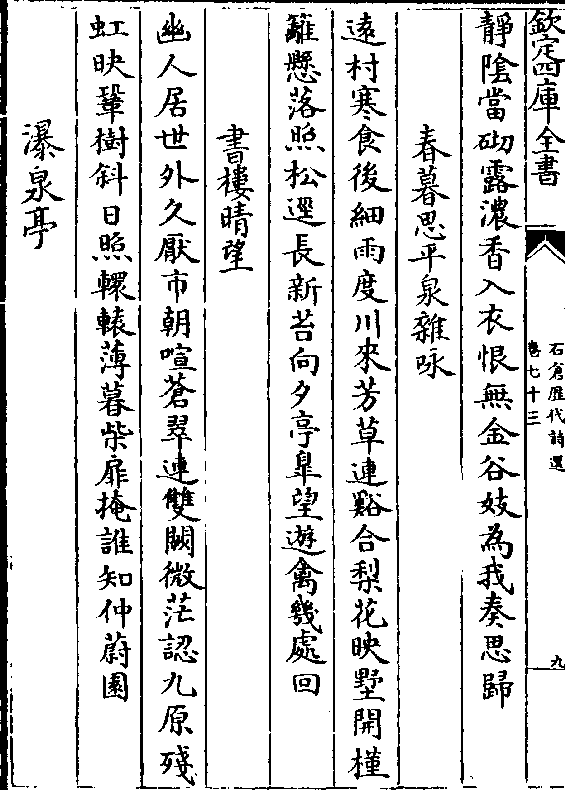 欽定四庫全書
石倉歷代詩選
卷七十三
九
靜陰當砌露濃香入衣恨無金谷妓為我奏思歸
春暮思平泉雜咏
遠村寒食後細雨度川來芳草連谿合梨花映墅開槿
籬懸落照松逕長新苔向夕亭臯望遊禽幾處回
書樓晴望
幽人居世外久厭市朝喧蒼翠連雙闕微茫認九原殘
虹映鞏樹斜日照轘轅薄暮柴扉掩誰知仲蔚園
瀑泉亭